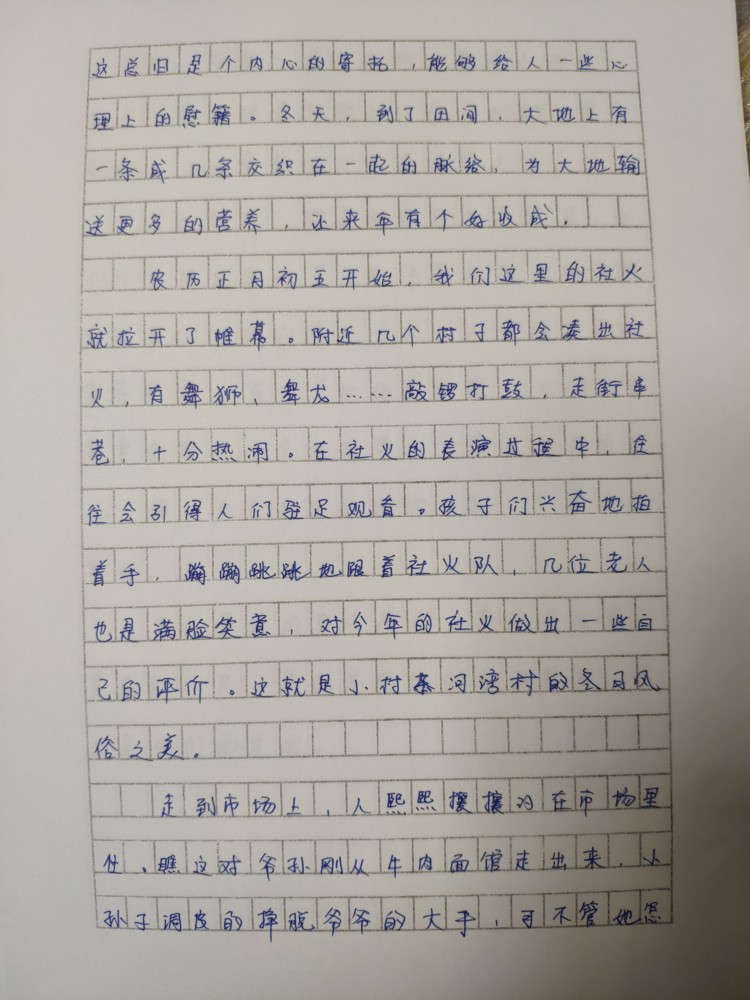 这总归是个内心的寄托，能够给人一些心
理上的慰籍。冬天，到了田间，大地上有
一条或几条交织在一起的脉络，为大地输
送更多的营养，让来年有个好收成。
农历正月初五开始，我们这里的社火
就拉开了帷幕。附近几个村子都会凑出社
火，有舞狮、舞龙……敲锣打鼓，走街串
巷，十分热闹。在社火的表演过程中，往
往会引得人们驻足观看。孩子们兴奋地拍
着手，蹦蹦跳跳地跟着社火队，几位老人
也是满脸笑意，对今年的社火做出一些自
己的评价。这就是小村 河湾村的冬日风
俗之美。
走到市场上，人熙熙攘攘 在市场里
。瞧这对爷孙刚从牛肉面馆走出来，小
孙子调皮的挣脱爷爷的大手，可不管她怎